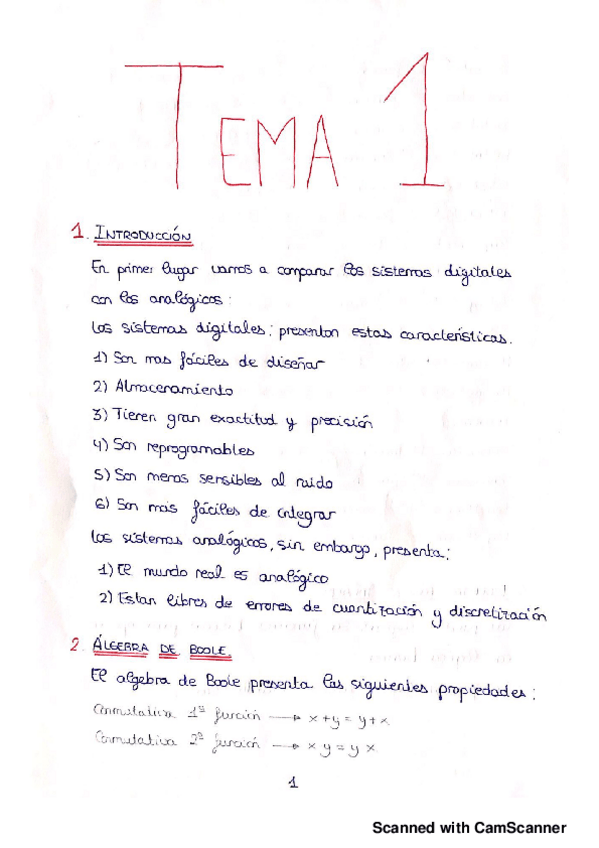 TEMA 1
1. INTRODUCCIÓN
En primer lugar vamos a comparar los sistemas digitales
con los analógicos:
Los sistemas digitales: presentan estas características.
1) Son mas fáciles de diseñar
2) Almacenamiento
3) Tienen gran exactitud y precisión
4) Son reprogramables
5) Son menos sensibles al ruido
6) Son más fáciles de integrar
Los sistemas analógicos, sin embargo, presenta:
1) El mundo real es analógico
2) Estan libres de errores de cuantización y discretización
2. ÁLGEBRA DE BOOLE.
El algebra de Boole presenta las siguientes propiedades:
Conmutativa 1ª función → x+y = y+x
Conmutativa 2ª función → x y = y x
1
Scanned with CamScanner